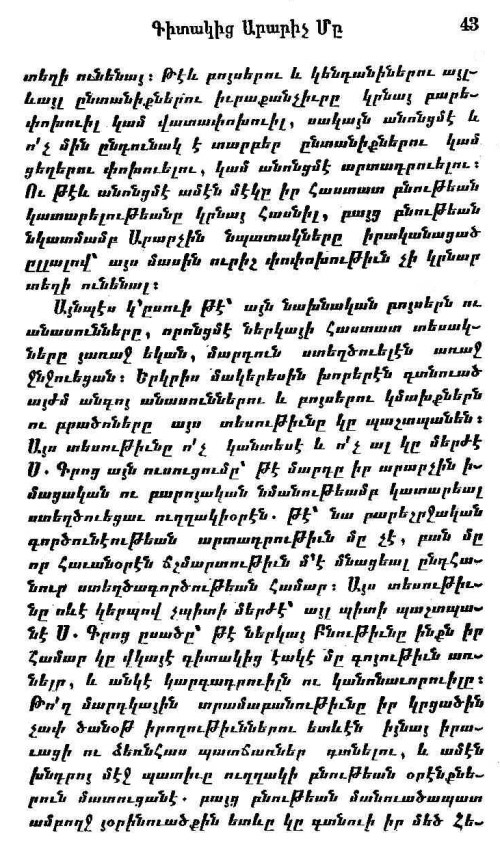 Գիտակից Արարիչ Մը 43
տեղի ունենալ: Թէև բոյսերու և կենդանիներու այլ-
ևայլ ընտանիքներու իւրաքանչիւրը կրնայ բարե-
փոխուիլ կամ վատափոխուիլ, սակայն անոնցմէ և
ո՛չ մին ընդունակ է տարբեր ընտանիքներու կամ
ցեղերու փոխուելու, կամ անոնցմէ արտադրուելու:
Ու թէև անոնցմէ ամէն մէկը իր հաստատ բնութեան
կատարելութեանը կրնայ հասնիլ, բայց բնութեան
նկատմամբ Արարչին նպատակները իրականացած
ըլլալով՝ այս մասին ուրիշ փոփոխութիւն չի կրնար
տեղի ունենալ:
Այնպէս կ՚ըսուի թէ՝ այն նախնական բոյսերն ու
անասունները, որոնցմէ ներկայի հաստատ տեսակ-
ները յառաջ եկան, մարդուն ստեղծուելէն առաջ
ջնջուեցան: Երկրիս մակերեսին խորերէն գտնուած
այժմ անգոյ անասուններու և բոյսերու կմախքներն
ու բրածոները այս տեսութիւնը կը պաշտպանեն:
Այս տեսութիւնը ո՛չ կանտեսէ և ո՛չ ալ կը մերժէ
Ս. Գրոց այն ուսուցումը՝ թէ մարդը իր արարչին ի-
մացական ու բարոյական նմանութեամբ կատարեալ
ստեղծուեցաւ ուղղակիօրէն. թէ՝ նա բարեշրջական
գործունէութեան արտադրութիւն մը չէ, բան մը
որ հաւանօրէն ճշմարտութիւն մ՚է մնացեալ ընդհա-
նուր ստեղծագործութեան համար: Այս տեսութիւ-
նը ոևէ կերպով չպիտի մերժէ՝ այլ պիտի պաշտպա-
նէ Ս. Գրոց ըսածը՝ թէ ներկայ Բնութիւնը ինքն իր
համար կը վկայէ գիտակից էակէ մը գոյութիւն առ-
նելը, և անկէ կարգադրուիլն ու կանոնաւորուիլը:
Թո՛ղ մարդկային տրամաբանութիւնը իր կրցածին
չափ ծանօթ իրողութիւններու ետևէն իյնայ իրա-
ւացի ու ձեռնհաս պատճառներ գտնելու, և ամէն
խնդրոյ մէջ պատիւը ուղղակի բնութեան օրէնքնե-
րուն մատուցանէ. բայց բնութեան մանուածապատ
ամբողջ յօրինուածքին ետևը կը գտնուի իր մեծ Հե-